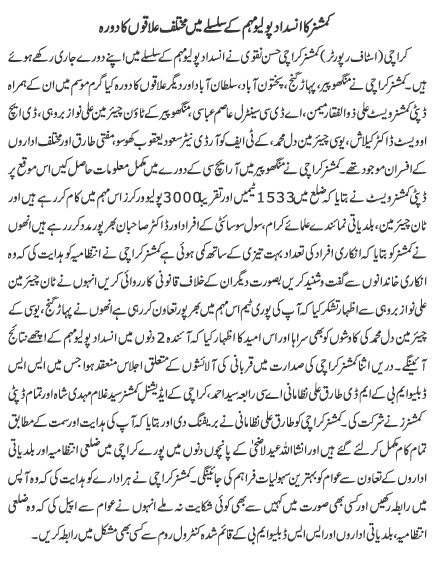 کمشنر کا انسداد پولیو مہم کے سلسلے میں مختلف علاقوں کا دورہ
کراچی (اسٹاف رپورٹر) کمشنر کراچی حسن نقوی نے انسداد پولیو مہم کے سلسلے میں اپنے دورے جاری رکھے ہوئے
ہیں۔ کمشنر کراچی نے منگھو پیر، پہاڑ گنج، پختون آباد، سلطان آباد اور دیگر علاقوں کا دورہ کیا گرم موسم میں ان کے ہمراہ
ڈپٹی کمشنر ویسٹ علی ذوالفقار میمن، اے ڈی سی سینٹرل عاصم عباسی، منگھو پیر کے ٹاون چیئر مین علی نواز بروہی، ڈی ایچ
او ویسٹ ڈاکٹر کیلاش، یوسی چیئر مین دل محمد، کے ٹی ایف کو آرڈی نیٹر سعود یعقوب کھوسو، مفتی طارق اور مختلف اداروں
کے افسران موجود تھے۔ کمشنر کراچی نے منگھو پیر میں آر ایچ سی کے دورے میں مکمل معلومات حاصل کیں اس موقع پر
ڈپٹی کمشنر ویسٹ نے بتایا کہ ضلع میں 1533 ٹیمیں اور تقریبا 3000 پولیو ورکرز اس مہم میں کام کر رہے ہیں اور
ٹان چیئر مین، بلدیاتی نمائندے علمائے کرام، سول سوسائٹی کے افراد اور ڈاکٹر صاحبان بھر پور مدد کر رہے ہیں انھوں
نے کمشنر کو بتایا کہ انکاری افراد کی تعداد بہت تیزی کے ساتھ کمی ہوئی ہے کمشنر کراچی نے انتظامیہ کو ہدایت کی کہ وہ
انکاری خاندانوں سے گفت و شنید کریں بصورت دیگر ان کے خلاف قانونی کارروائی کریں انہوں نے ٹان چیئر مین
علی نواز بروہی سے اظہار تشکر کیا کہ آپ کی پوری ٹیم اس مہم میں بھر پور تعاون کر رہی ہے انھوں نے پہاڑ گنج، یوسی کے
چیئر مین دل محمد کی کاوشوں کو بھی سراہا اور اس امید کا اظہار کیا کہ آئندہ 2 دنوں میں انسداد پولیو مہم کے اچھے نتائج
آئینگے۔ دریں اثنا کمشنر کراچی کی صدارت میں قربانی کی آلائشوں کے متعلق اجلاس منعقد ہوا جس میں ایس ایس
ڈبلیو ایم بی کے ایم ڈی طارق علی نظامانی اے سی رابعہ سید احمد، کراچی کے ایڈیشنل کمشنر سید غلام مہدی شاہ اور تمام ڈپٹی
کمشنرز نے شرکت کی۔ کمشنر کراچی کو طارق علی نظامانی نے بریفنگ دی اور بتایا کہ آپ کی ہدایت اور سمت کے مطابق
تمام کام مکمل کر لئے گئے ہیں اور انشا اللہ عید الاضحیٰ کے پانچوں دنوں میں پورے کراچی میں ضلعی انتظامیہ اور بلدیاتی
اداروں کے تعاون سے عوام کو بہترین سہولیات فراہم کی جائینگی۔ کمشنر کراچی نے ہر ادارے کو ہدایت کی کہ وہ آپس
میں رابطہ رکھیں اور کسی بھی صورت میں کہیں سے بھی کوئی شکایت نہ ملے انہوں نے عوام سے اپیل کی کہ وہ ضلعی
انتظامیہ، بلدیاتی اداروں اور ایس ایس ڈبلیو ایم بی کے قائم شدہ کنٹرول روم سے کسی بھی مشکل میں رابطہ کریں۔